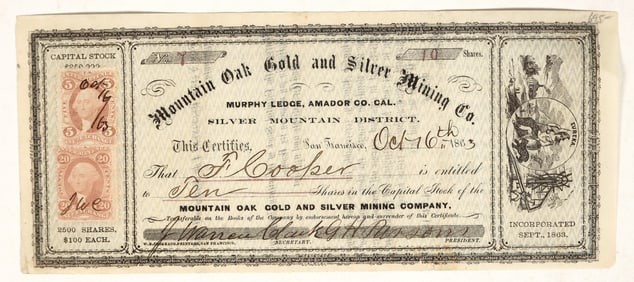 695-
CAPITAL STOCK
$250,000
No. 7
10 Shares.
Mountain Oak Gold and Silver Mining Co.
MURPHY LEDGE, AMADOR CO. CAL.
SILVER MOUNTAIN DISTRICT.
This Certifies, San Francisco, Oct 16th 1863
That F Cooper is entitled
to Ten Shares in the Capital Stock of the
MOUNTAIN OAK GOLD AND SILVER MINING COMPANY,
Transferable on the Books of the Company by endorsement hereon and surrender of this Certificate.
J. Warren Clark G H Parsons
SECRETARY. PRESIDENT.
Oct
16
/63
5 5
20 20
JWC
2500 SHARES,
$100 EACH.
EUREKA
INCORPORATED
SEPT., 1863.